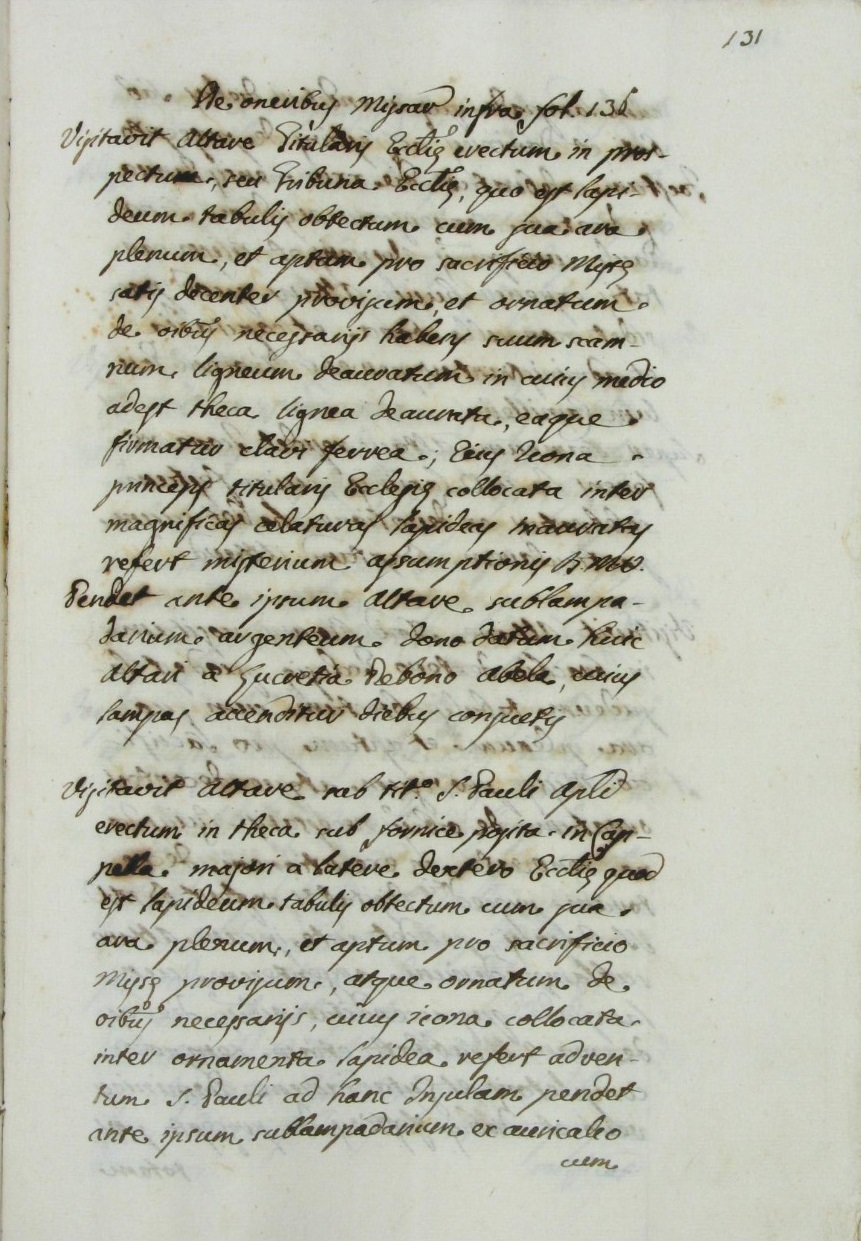 131
De oneribus Missar̃ infra fol. 136
Visitavit Altare Titularis Ecclię erectum in pros-
pectum, seu Tribuna Ecclię, quo est lapi-
deum tabulis obtectum cum sua ara
plenum, et aptum pro sacrificio Missę
satis decenter provisum, et ornatum
de oibus necessarijs habens suum scam-
num ligneum deauratum in cuius medio
adest theca lignea deaurata, eaque
firmatur clavi ferrea; Eius Icona
principis titularis Ecclesię collocata inter
magnificas celaturas lapideas inauratas
refert misterium assumptionis B.M.V.
Pendet ante ipsum Altare sublampa-
darium argenteum dono datum huic
Altari a Lucretia Debono Abela, cuius
lampas accenditur diebus consuetis
Visitavit Altare sub tit.º S. Pauli Apli
erectum in theca sub fornice posita in Cap-
pella majori a latere dextero Ecclię quod
est lapideum tabulis obtectum cum sua
ara plenum, et aptum pro sacrificio
Missę provisum, atque ornatum de
oibus necessarijs, cuius icona collocata
inter ornamenta lapidea refert adven-
tum S. Pauli ad hanc Insulam pendet
ante ipsum sublampadarium ex auricalco
cum